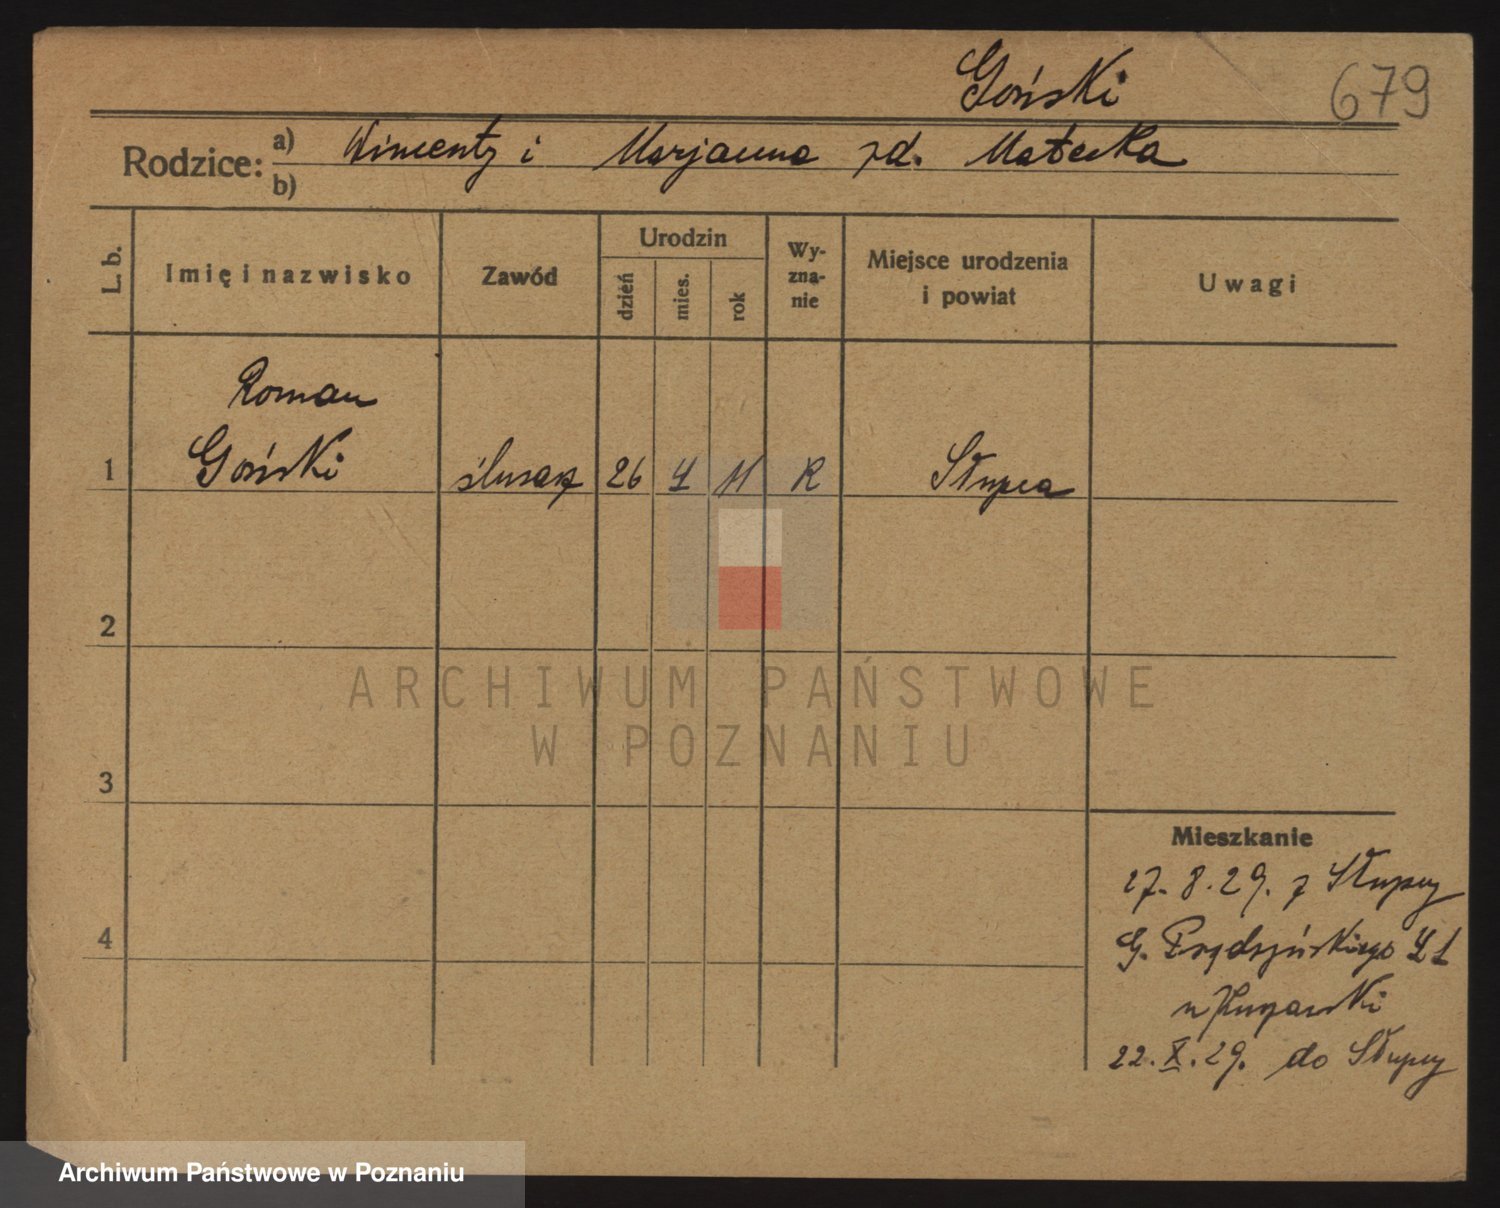 Goński
679
Rodzice: a) Wincenty i Marjanna zd. Matecka
b)
L. b.
Imię i nazwisko
Zawód
Urodzin
dzień
mies.
rok
Wy-
zna-
nie
Miejsce urodzenia
i powiat
Uwagi
Roman
1 Goński ślusarz 26 4 11 R Słupca
2
3
4
Mieszkanie
27. 8. 29. z Słupcy
G. Prądzyńskiego 41
u
22. X. 29. do Słupcy
ARCHIWUM PAŃSTWOWE
W POZNANIU
Archiwum Państwowe w Poznaniu